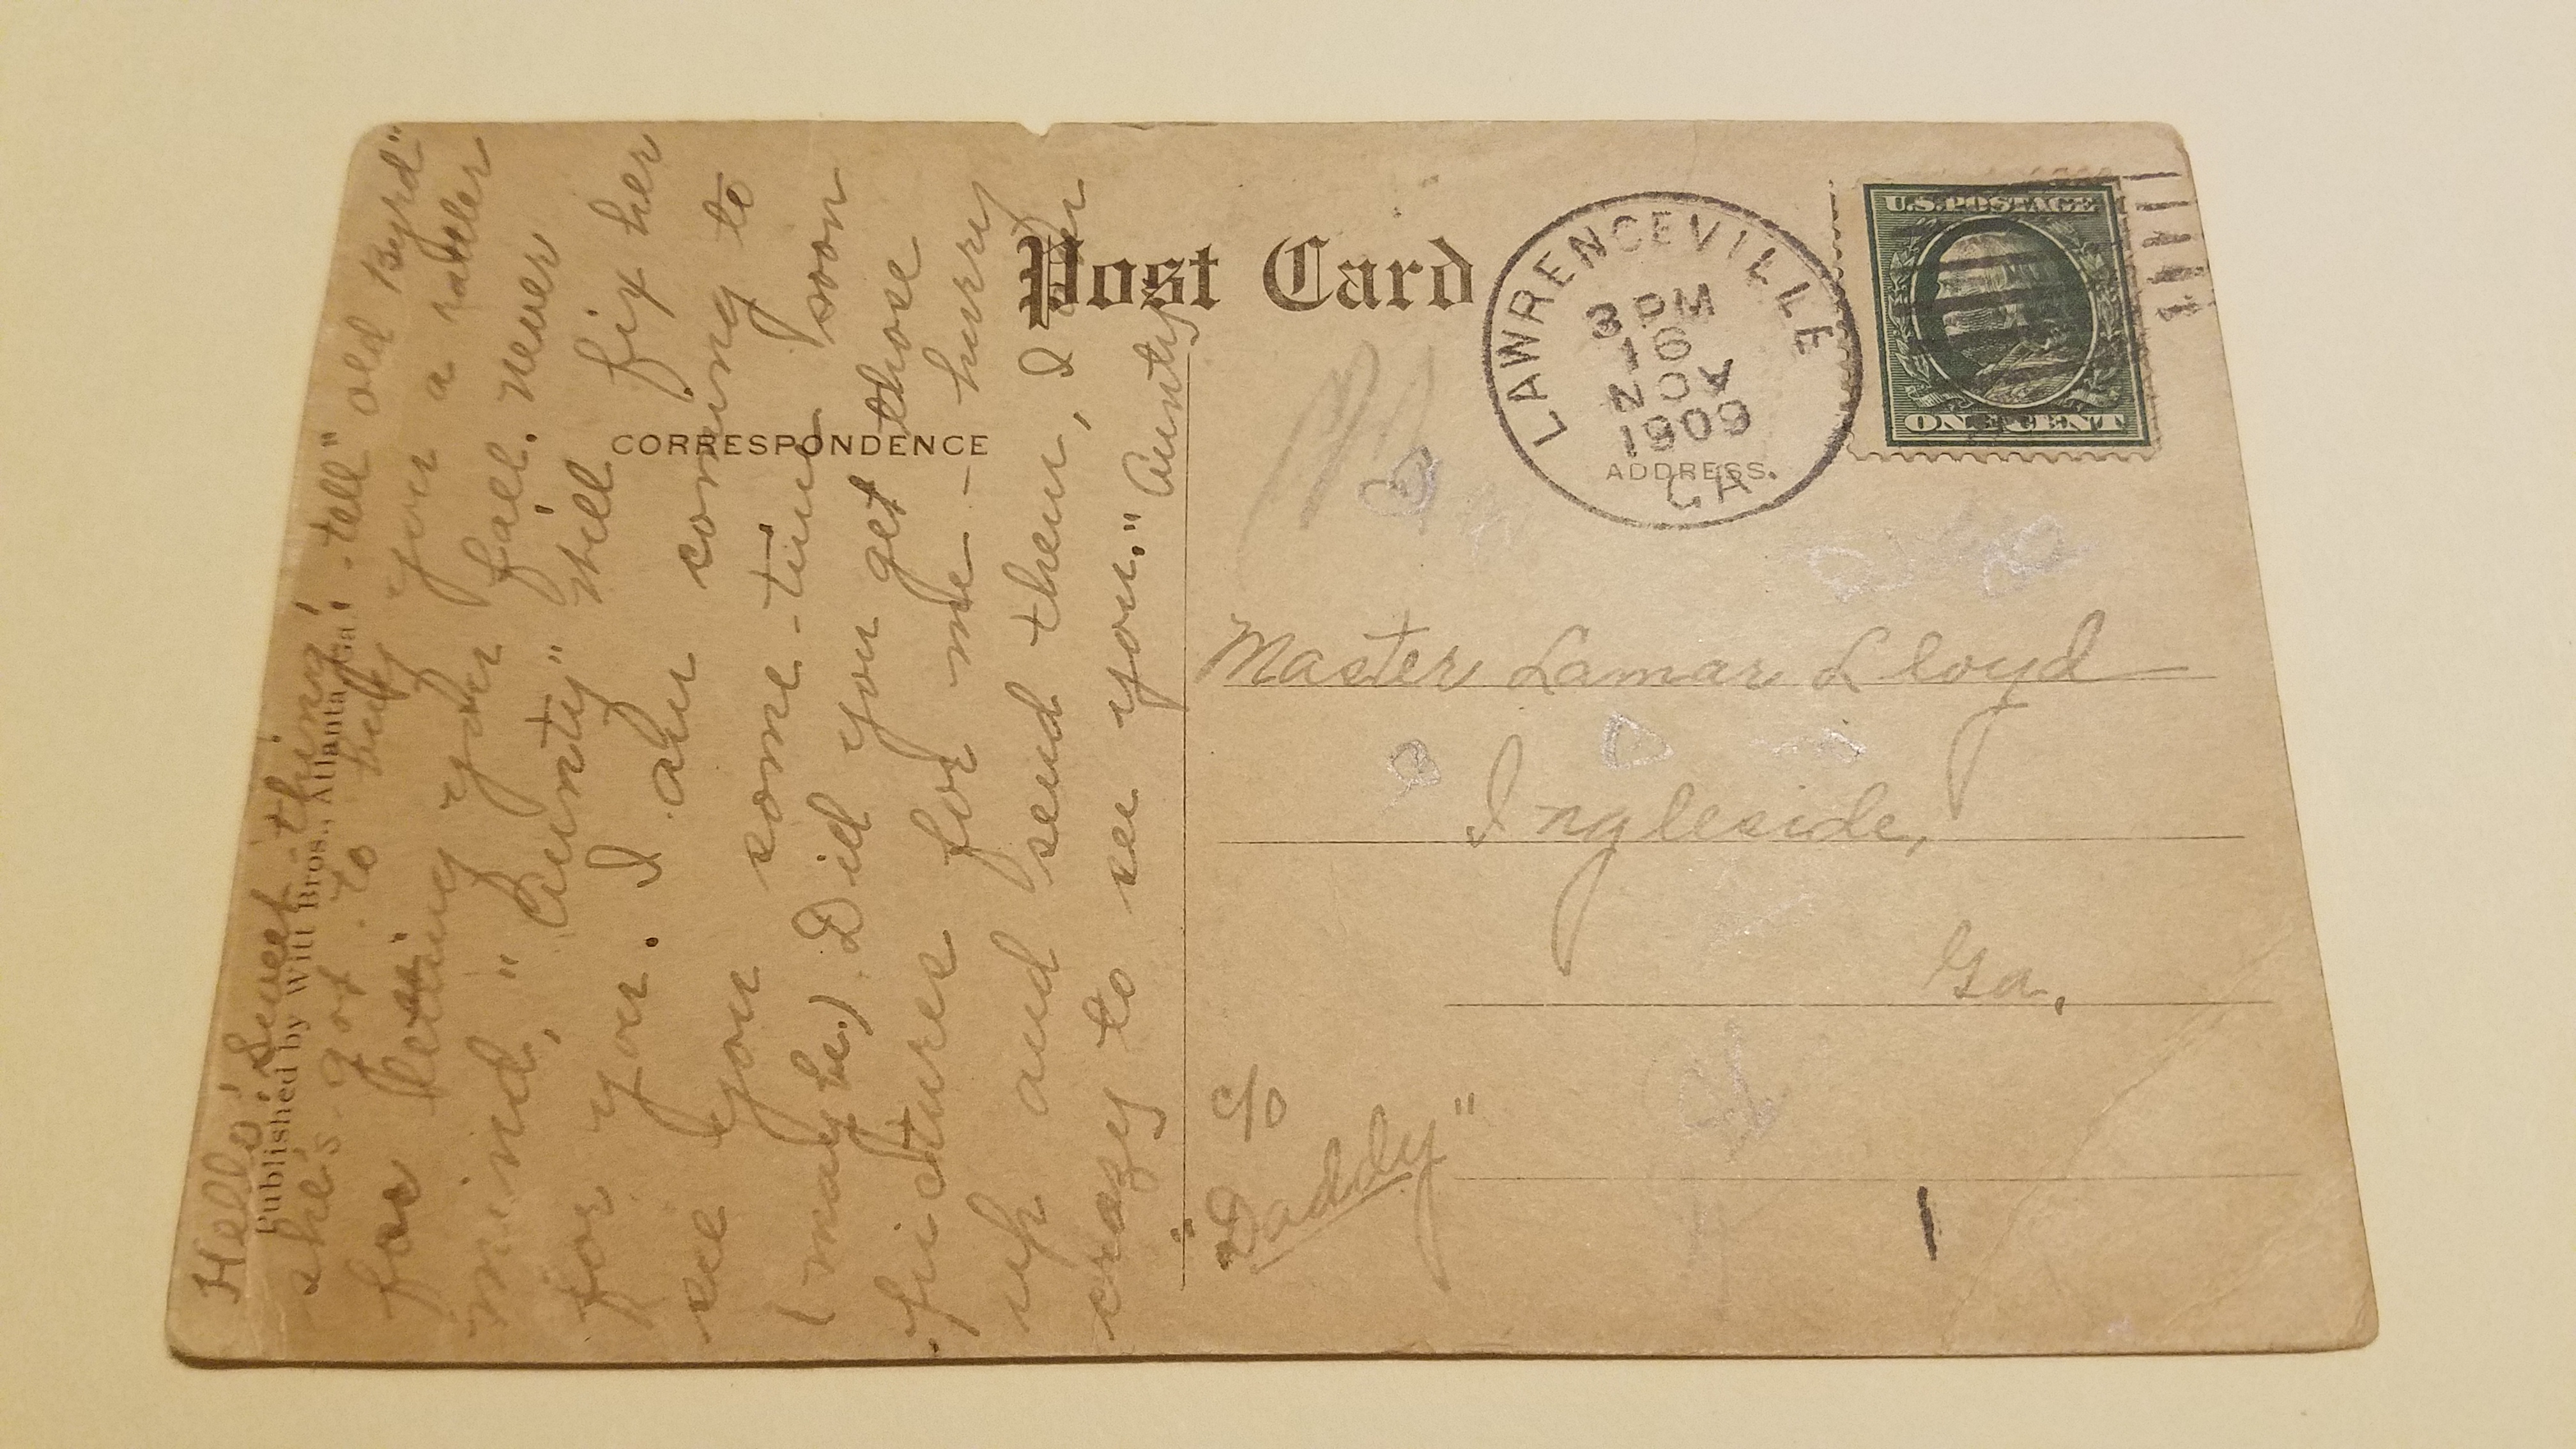 Post Card
CORRESPONDENCE
ADDRESS.
Published by Witt Bros., Atlanta, Ga.
LAWRENCEVILLE
3 PM
16
NOV
1909
GA.
U.S. POSTAGE
ONE CENT
Hello! Sweet-thing! tell "old Byrd"
she's got to buy you a
for letting you fall. never
mind, "Aunty" still fix her
for you. I am coming to
see you some-time soon
(may be.) Did you get those
pictures for me - hurry
up and send them, I'm
crazy to see you." Aunty
Master Lamar Lloyd
Ingleside,
Ga.
c/o
"Daddy"